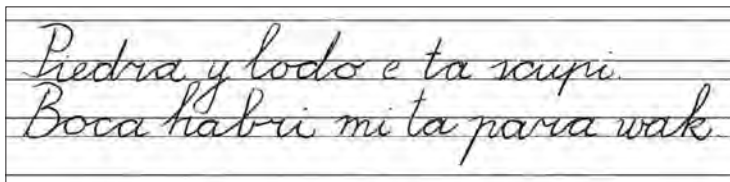 Piedra y lodo e ta scupi.
Boca habri mi ta para wak.